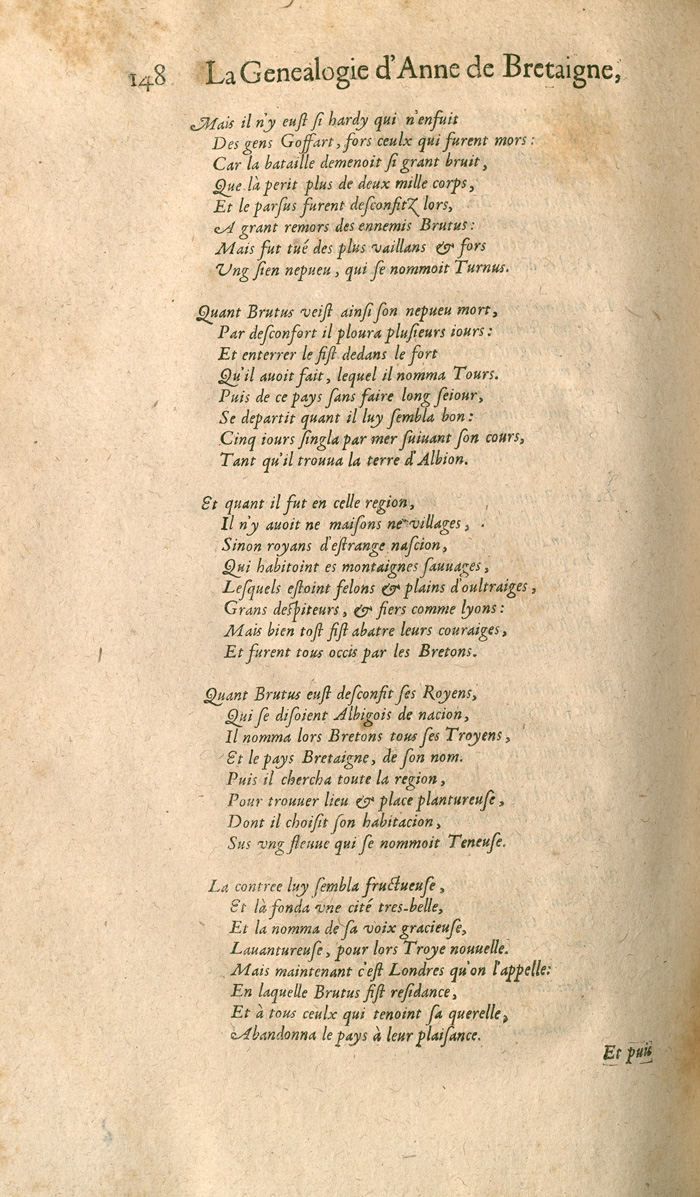 148 La Genealogie d'Anne de Bretaigne,
Mais il n'y eust si hardy qui n'enfuit
Des gens Goffart, fors ceulx qui furent mors:
Car la bataille demenoit si grant bruit,
Que là perit plus de deux mille corps,
Et le parsus furent desconfitz lors,
A grant remors des ennemis Brutus:
Mais fut tué des plus vaillans & fors
Vng sien nepueu, qui se nommoit Turnus.
Quant Brutus veist ainsi son nepueu mort,
Par desconfort il ploura plusieurs iours:
Et enterrer le fist dedans le fort
Qu'il auoit fait, lequel il nomma Tours.
Puis de ce pays sans faire long seiour,
Se departit quant il luy sembla bon:
Cinq iours singla par mer suiuant son cours,
Tant qu'il trouua la terre d'Albion.
Et quant il fut en celle region,
Il n'y auoit ne maisons ne villages,
Sinon royans d'estrange nascion,
Qui habitoint es montaignes sauuages,
Lesquels estoint felons & plains d'oultraiges,
Grans despiteurs, & fiers comme lyons:
Mais bien tost fist abatre leurs couraiges,
Et furent tous occis par les Bretons.
Quant Brutus eust desconfit ses Royens,
Qui se disoient Albigois de nacion,
Il nomma lors Bretons tous ses Troyens,
Et le pays Bretaigne, de son nom.
Puis il chercha toute la region,
Pour trouuer lieu & place plantureuse,
Dont il choisit son habitacion,
Sus vng fleuue qui se nommoit Teneuse.
La contree luy sembla fructueuse,
Et là fonda vne cité tres-belle,
Et la nomma de sa voix gracieuse,
Lauantureuse, pour lors Troye nouuelle.
Mais maintenant c'est Londres qu'on l'appelle:
En laquelle Brutus fist residance,
Et à tous ceulx qui tenoint sa querelle,
Abandonna le pays à leur plaisance.
Et puis